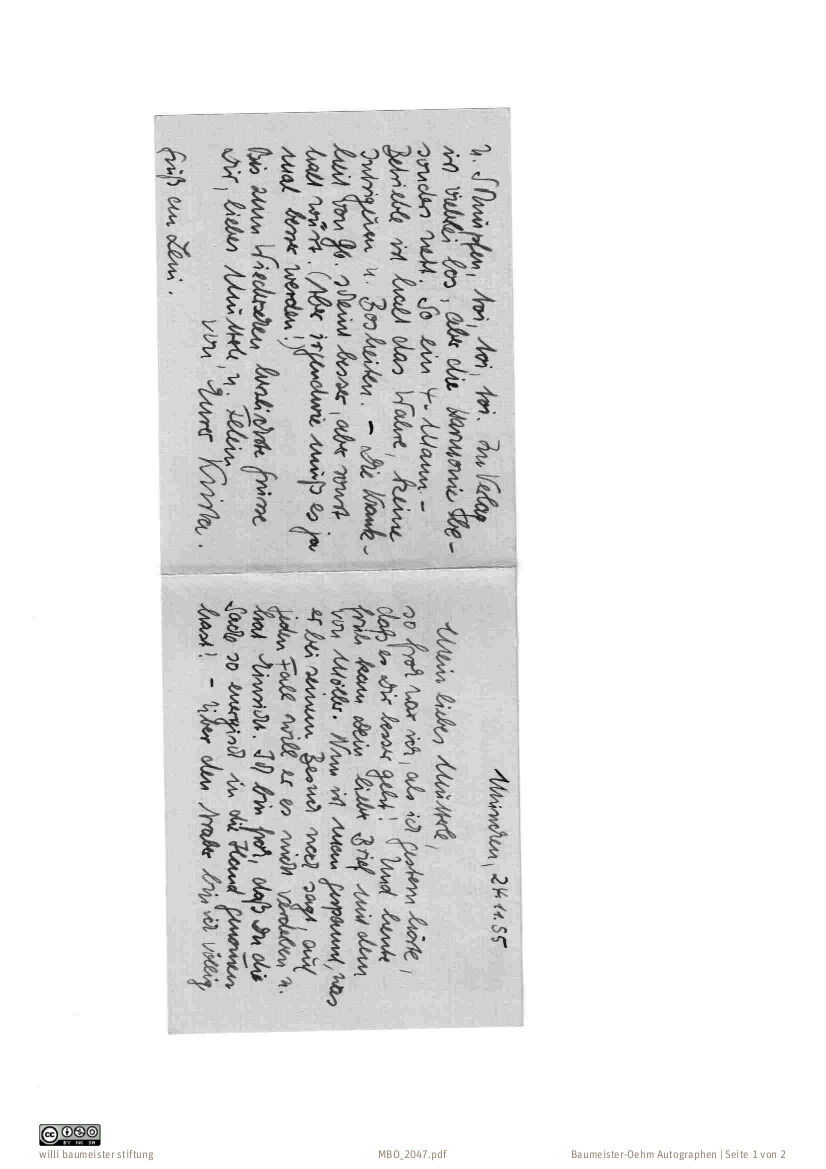 München, 24.11.55
Mein liebes Müttele,
so froh war ich, als ich gestern hörte,
daß es Dir besser geht! Und heute
früh kam Dein lieber Brief mit dem
von Möller. Nun ist man gespannt, was
er bei seinem Besuch noch sagt, auf
jeden Fall will er es nicht verderben u.
hat Einsicht. Ich bin froh, daß Du die
Sache so energisch in die Hand genommen
hast! – Über den bin ich völlig
u. Schnupfen, toi, toi, toi. Im Verlag
ist vielerlei los, aber die Harmonie
sonder nett. So ein 4-Mann-
Betrieble ist halt das Wahre, keine
Intrigen u. Bosheiten. – Die Krank-
heit von scheint besser, aber sonst
halt wüst. (Aber irgendwie muß es ja
mal besser werden!)
Bis zum Wiedersehen herzlichste Grüsse
Dir, liebes Müttele, u. Felein
von Eurer Krista.
Gruß an Leni.
willi baumeister stiftung
MBO_2047.pdf
Baumeister-Oehm Autographen | Seite 1 von 2
CC BY NC SA